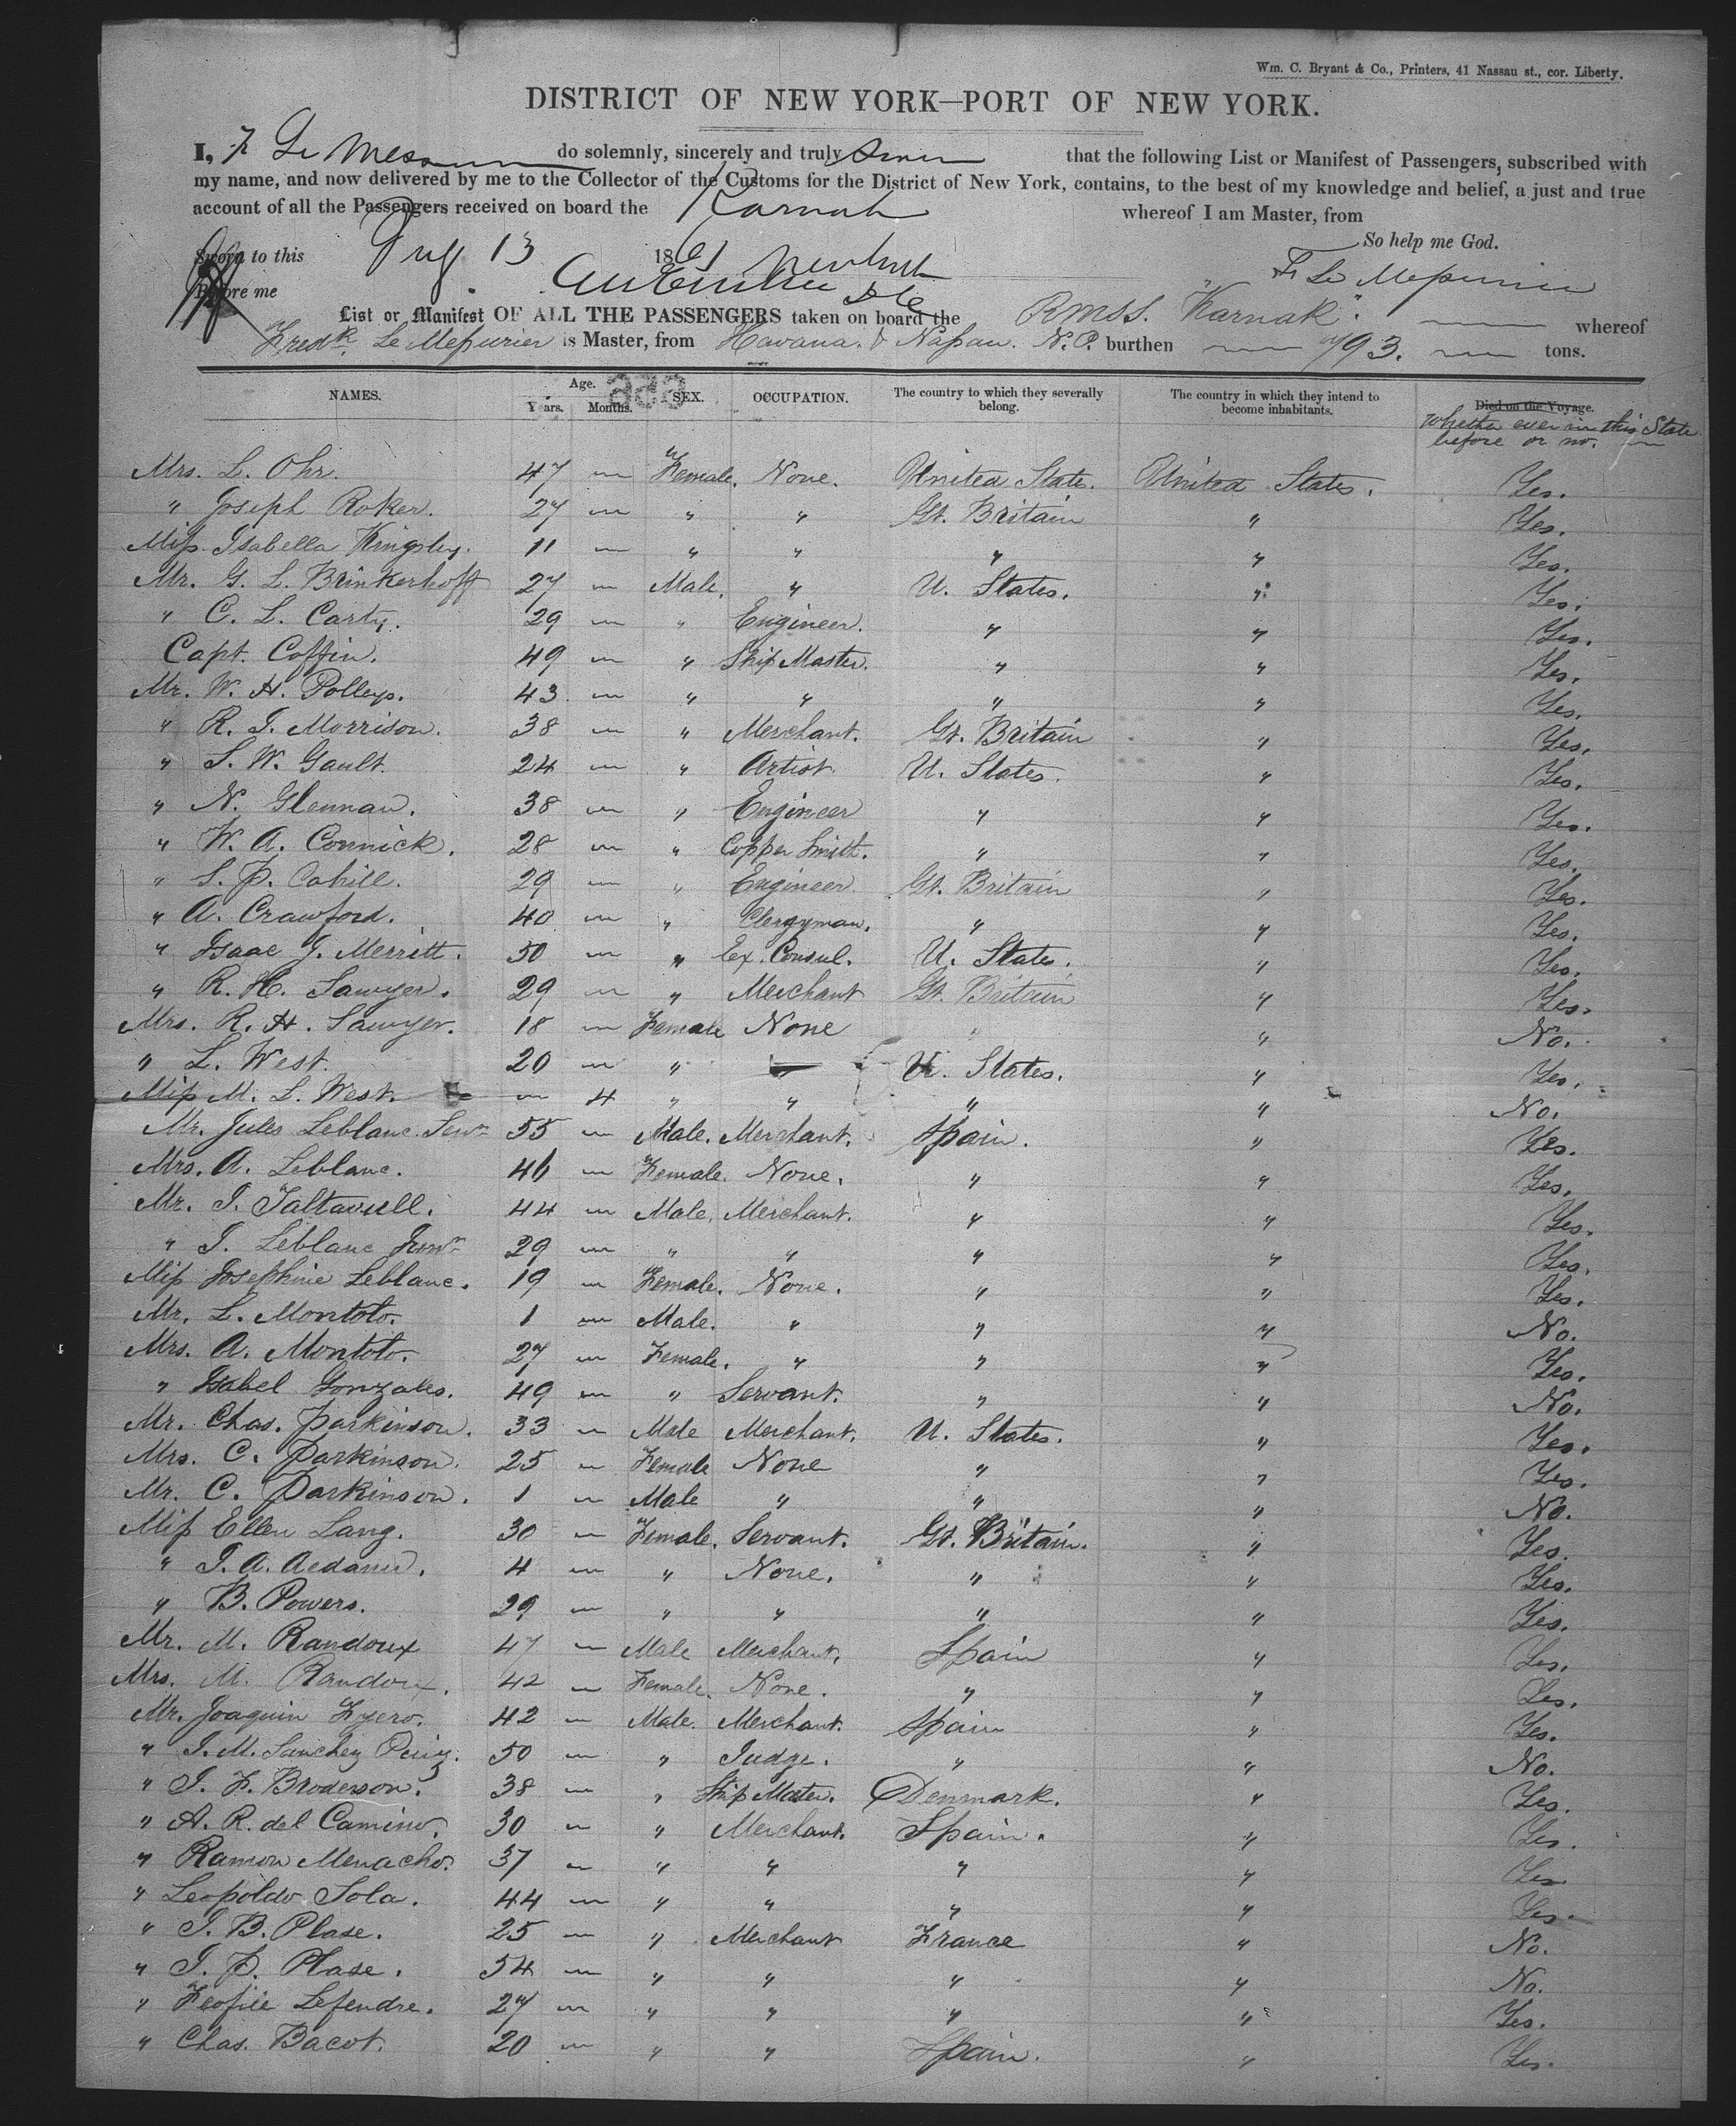 Wm. C. Bryant & Co., Printers, 41 Nassau st., cor. Liberty.
DISTRICT OF NEW YORK—PORT OF NEW YORK.
I, F Le Mesurier do solemnly, sincerely and truly swear that the following List or Manifest of Passengers, subscribed with
my name, and now delivered by me to the Collector of the Customs for the District of New York, contains, to the best of my knowledge and belief, a just and true
account of all the Passengers received on board the Karnak whereof I am Master, from
So help me God.
Sworn to this 13 1861
Before me F. Le Mesurier
List or Manifest OF ALL THE PASSENGERS taken on board the RMSS. "Karnak". whereof
Fredk. Le Mesurier is Master, from Havana. & Nassau. N.P. burthen 793. tons.
NAMES. Age. Years. Months. SEX. OCCUPATION. The country to which they severally belong. The country in which they intend to become inhabitants. Died on the Voyage.
Whether ever in this State before or no.
Mrs. L. Ohr. 47 — Female. None. United State. United States. Yes.
" Joseph Roker. 27 — " " Gt. Britain " Yes.
Miss. Isabella Kingsley. 11 — " " " " Yes.
Mr. G. L. Brinkerhoff 27 — Male. " U. States. " Yes.
" C. L. Carty. 29 — " Engineer. " " Yes.
Capt. Coffin. 49 — " Ship Master. " " Yes.
Mr. W. H. Polleys. 43 — " " " " Yes.
" R. J. Morrison. 38 — " Merchant. Gt. Britain " Yes.
" S. W. Gault. 24 — " Artist. U. States. " Yes.
" N. Glennan. 38 — " Engineer " " Yes.
" W. A. Connick. 28 — " Copper Smith. " " Yes.
" S. P. Cahill. 29 — " Engineer Gt. Britain " Yes.
" A. Crawford. 40 — " Clergyman. " " Yes.
" Isaac J. Merritt. 50 — " Ex. Consul. U. States. " Yes.
" R. H. Sawyer. 29 — " Merchant Gt. Britain " Yes.
Mrs. R. H. Sawyer. 18 — Female None " " No.
" L. West. 20 — " " U. States. " Yes.
Miss M. L. West. — 4 " " " " No.
Mr. Jules Leblanc. Senr 55 — Male. Merchant. Spain. " Yes.
Mrs. A. Leblanc. 46 — Female. None. " " Yes.
Mr. J. Taltavull. 44 — Male. Merchant. " " Yes.
" J. Leblanc Junr 29 — " " " " Yes.
Miss Josephine Leblanc. 19 — Female. None. " " Yes.
Mr. L. Montoto. 1 — Male. " " " No.
Mrs. A. Montoto. 27 — Female. " " " Yes.
" Isabel Gonzales. 49 — " Servant. " " No.
Mr. Chas. Parkinson. 33 — Male Merchant. U. States. " Yes.
Mrs. C. Parkinson. 25 — Female None " " Yes.
Mr. C. Parkinson. 1 — Male " " " No.
Miss Ellen Lang. 30 — Female. Servant. Gt. Britain. " Yes.
" J. A. 4 — " None. " " Yes.
" B. Powers. 29 — " " " " Yes.
Mr. M. Randoux 47 — Male Merchant. Spain " Yes.
Mrs. M. Randoux. 42 — Female. None. " " Yes.
Mr. Joaquin 42 — Male. Merchant. Spain " Yes.
" J. M. Sanchez 50 — " Judge. " " No.
" J. F. Broderson. 38 — " Ship Master. Denmark. " Yes.
" A. R. del Camino. 30 — " Merchant. Spain. " Yes.
" Ramon Menacho. 37 — " " " " Yes
" Leopoldo Sola. 44 — " " " " Yes.
" J. B. Plase. 25 — " Merchant France " No.
" J. P. Plase. 54 — " " " " No.
" Lefendre. 27 — " " " " Yes.
" Chas. Bacot. 20 — " " Spain. " Yes.